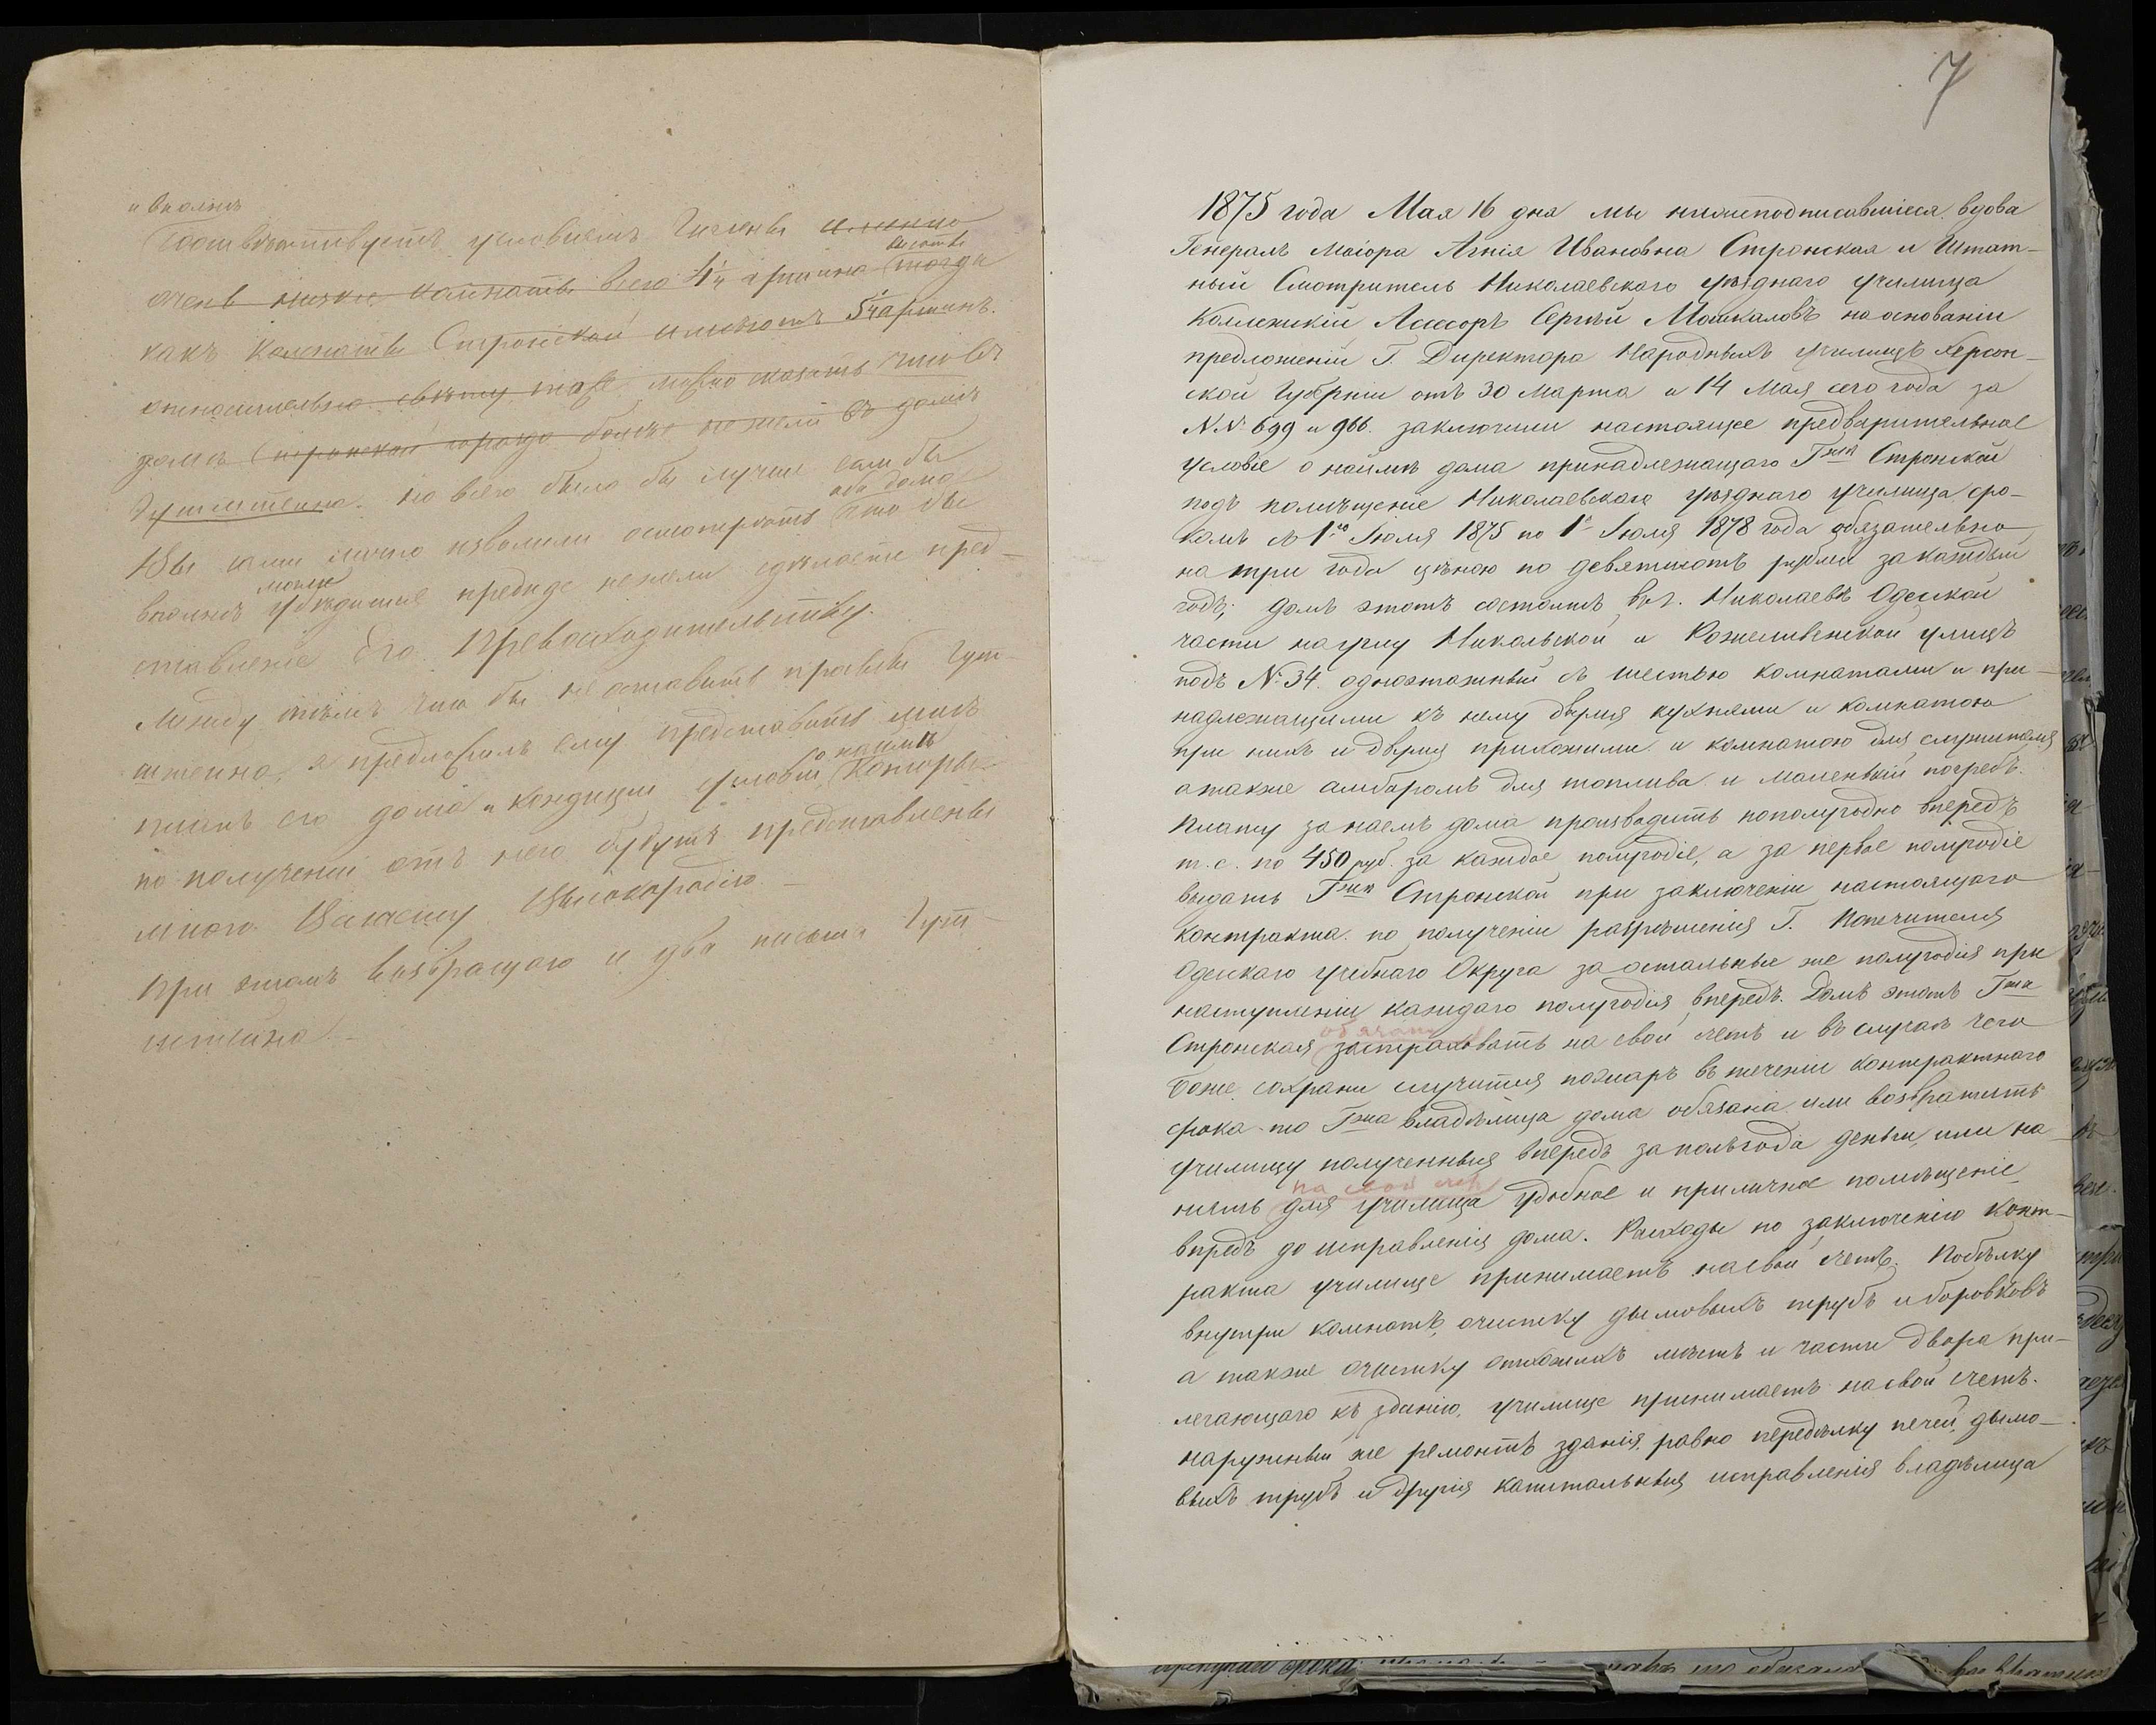 и вполнѣ
соотвѣтствуетъ условіямъ Гигіены именно
высоты
очень низкіе комнаты всего 4¼ аршина тогда
какъ комнаты Стронской имѣютъ 5¼ аршинъ.
относительно свѣту тоже можно сказать что въ
домѣ Стронской гораздо болѣе нежели въ домѣ
но всего было бы лучше если бы
оба дома
Вы сами лично изволили осмотрѣть что бы
могли
вполнѣ убѣдиться прежде нежели сдѣлаете пред-
ставленіе Его Превосходительству.
Между тѣмъ что бы не оставить просьбы Гут-
штейна, я предложилъ ему представить мнѣ
о наймѣ
планъ его дома и кондиціи условій, которые
по полученіи отъ него будутъ представлены
мною Вашему Высокородію. –
При этомъ возвращаю и два письма Гут-
штейна. –
7
1875 года Мая 16 дня мы нижеподписавшіеся, вдова
Генералъ Маіора Агнія Ивановна Стронская и Штат-
ный Смотритель Николаевскаго уѣзднаго училища
Коллежскій Асессоръ Сергѣй Машкаловъ на основаніи
предложеній Г. Директора Народныхъ училищъ Херсон-
ской Губерніи отъ 30 Марта и 14 Мая сего года за
N.N. 699 и 966. заключили настоящее предварительное
условіе о наймѣ дома принадлежащаго Гжѣ Стронской
подъ помѣщеніе Николаевскаго уѣзднаго училища сро-
комъ съ 1го Іюля 1875 по 1е Іюля 1878 года обязательно
на три года цѣною по девятисотъ рублей за каждый
годъ; домъ этотъ состоитъ въ г. Николаевѣ Одесской
части на углу Никольской и Рожественской улицъ
подъ №. 34. одноэтажный съ шестью комнатами и при-
надлежащими къ нему двумя кухнями и комнатою
при нихъ и двумя прихожими и комнатою для служителя
а также амбаромъ для топлива и маленькій погребъ.
Плату за наемъ дома производить пополугодно впередъ
т. е. по 450 руб. за каждое полугодіе, а за первое полугодіе
выдать Гжѣ Стронской при заключеніи настоящаго
контракта по полученіи разрѣшенія Г. Попечителя
Одесскаго учебнаго Округа за остальные же полугодія при
наступленіи каждаго полугодія впередъ. Домъ этотъ Гжа
обязана
Стронская застраховать на свой счетъ и въ случаѣ чего
Боже сохрани случится пожаръ въ теченіи контрактнаго
срока то Гжа владѣлица дома обязана или возвратить
училищу полученныя впередъ за полгода деньги или на-
на свой счетъ
нять для училища удобное и приличное помѣщеніе
впредь до исправленія дома. Расходы по заключенію конт-
ракта училище принимаетъ на свой счетъ. Побѣлку
внутри комнатъ, очистку дымовыхъ трубъ и боровковъ
а также очистку отхожихъ мѣстъ и части двора при-
легающаго къ зданію, училище принимаетъ на свой счетъ.
наружный же ремонтъ зданія, равно передѣлку печей, дымо-
выхъ трубъ и другія капитальныя исправленія владѣлица